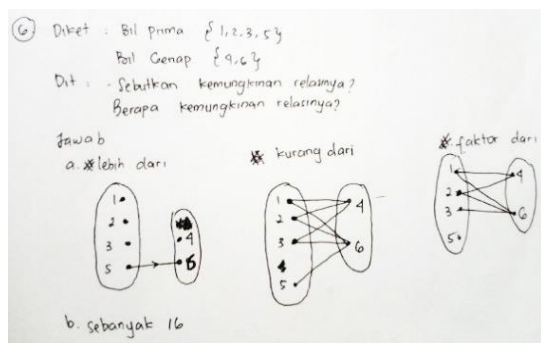 6. Diket : Bil prima {1,2,3,5}
Bil Genap {4,6}
Dit : - Sebutkan kemungkinan relasinya?
Berapa kemungkinan relasinya?
Jawab
a. lebih dari
kurang dari
faktor dari
1
2
3
5
4
6
1
2
3
5
4
6
1
2
3
5
4
6
b. sebanyak 16